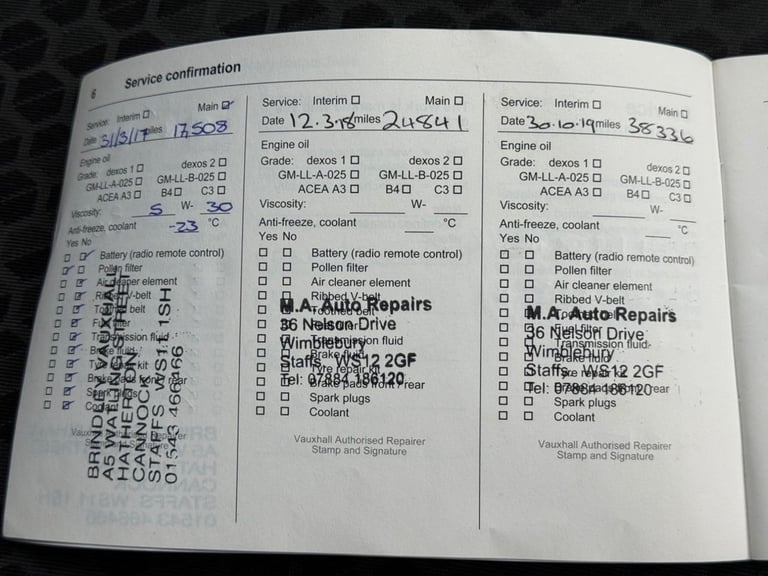 6
Service confirmation
Service: Interim ☐ Main ☑
Date 31/3/17 miles 17,508
Engine oil
Grade: dexos 1 ☐ dexos 2 ☐
GM-LL-A-025 ☐ GM-LL-B-025 ☐
ACEA A3 ☐ B4 ☐ C3 ☐
Viscosity: 5 W- 30
Anti-freeze, coolant -23 °C
Yes No
Battery (radio remote control)
Pollen filter
Air cleaner element
Ribbed V-belt
Toothed belt
Fuel filter
Transmission fluid
Brake fluid
Tyre repair kit
Brake pads front / rear
Spark plugs
Coolant
Vauxhall Authorised Repairer
Stamp and Signature
BRINDLEY VAUXHALL
A5 WATLING STREET
HATHERTON
CANNOCK
STAFFS WS11 1SH
01543 466166
Service: Interim ☐ Main ☐
Date 12.3.18 miles 24841
Engine oil
Grade: dexos 1 ☐ dexos 2 ☐
GM-LL-A-025 ☐ GM-LL-B-025 ☐
ACEA A3 ☐ B4 ☐ C3 ☐
Viscosity: W-
Anti-freeze, coolant °C
Yes No
Battery (radio remote control)
Pollen filter
Air cleaner element
Ribbed V-belt
Toothed belt
Transmission fluid
Brake fluid
Tyre repair kit
Brake pads front / rear
Spark plugs
Coolant
M.A. Auto Repairs
36 Nelson Drive
Wimblebury
Staffs WS12 2GF
Tel: 07884 186120
Vauxhall Authorised Repairer
Stamp and Signature
Service: Interim ☐ Main ☐
Date 30.10.19 miles 38336
Engine oil
Grade: dexos 1 ☐ dexos 2 ☐
GM-LL-A-025 ☐ GM-LL-B-025 ☐
ACEA A3 ☐ B4 ☐ C3 ☐
Viscosity: W-
Anti-freeze, coolant °C
Yes No
Battery (radio remote control)
Pollen filter
Air cleaner element
Ribbed V-belt
Toothed belt
Fuel filter
Transmission fluid
Brake fluid
Tyre repair kit
Brake pads front / rear
Spark plugs
Coolant
M.A. Auto Repairs
36 Nelson Drive
Wimblebury
Staffs WS12 2GF
Tel: 07884 186120
Vauxhall Authorised Repairer
Stamp and Signature